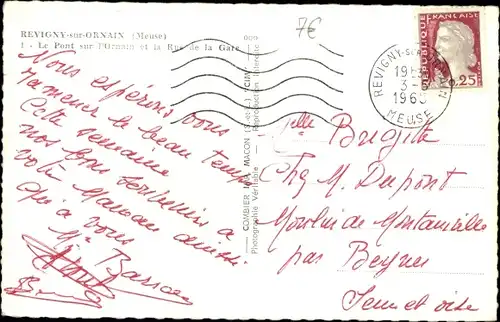 REVIGNY-sur-ORNAIN (Meuse)
1 - Le Pont sur l'Ornain et la Rue de la Gare
7€
Nous espérons vous
ramener le beau temps
Cette semaine
nos bons souvenirs a
votre Maman ainsi
qu'a vous
M. Basson
COMBIER IMP. MACON (S.-et-L.) "CIM"
Photographie Véritable - Reproduction Interdite
RÉPUBLIQUE FRANÇAISE
0,25
REVIGNY-SUR-ORNAIN
3
MEUSE
Melle Brigitte
Chez M. Dupont
Moulin de Montainville
par Beynes
Seine et oise